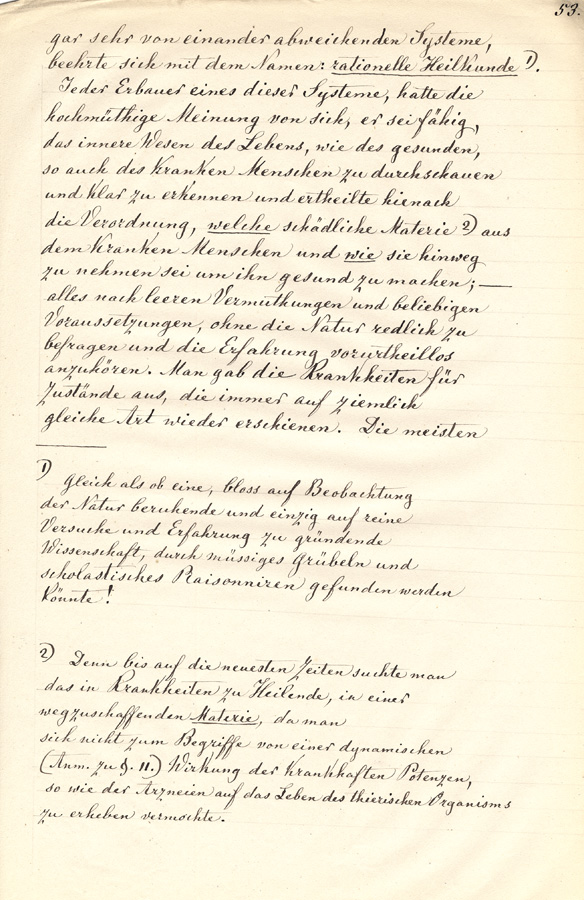 53.
gar sehr von einander abweichenden Systeme,
beehrte sich mit dem Namen: rationelle Heilkunde 1).
Jeder Erbauer eines dieser Systeme, hatte die
hochmüthige Meinung von sich, er sei fähig,
das innere Wesen des Lebens, wie des gesunden,
so auch des Kranken Menschen zu durchschauen
und klar zu erkennen und ertheilte hienach
die Verordnung, welche schädliche Materie 2) aus
dem Kranken Menschen und wie sie hinweg
zu nehmen sei um ihn gesund zu machen; —
alles nach leeren Vermuthungen und beliebigen
Voraussetzungen, ohne die Natur redlich zu
befragen und die Erfahrung vorurtheillos
anzuhören. Man gab die Krankheiten für
Zustände aus, die immer auf ziemlich
gleiche Art wieder erschienen. Die meisten
1) Gleich als ob eine, bloss auf Beobachtung
der Natur beruhende und einzig auf reine
Versuche und Erfahrung zu gründende
Wissenschaft, durch müssiges Grübeln und
scholastisches Raisonniren gefunden werden
könnte!
2) Denn bis auf die neuesten Zeiten suchte man
das in Krankheiten zu Heilende, in einer
wegzuschaffenden Materie, da man
sich nicht zum Begriffe von einer dynamischen
(Anm. zu §. 11.) Wirkung der krankhaften Potenzen,
so wie der Arzneien auf das Leben des thierischen Organisms
zu erheben vermochte.